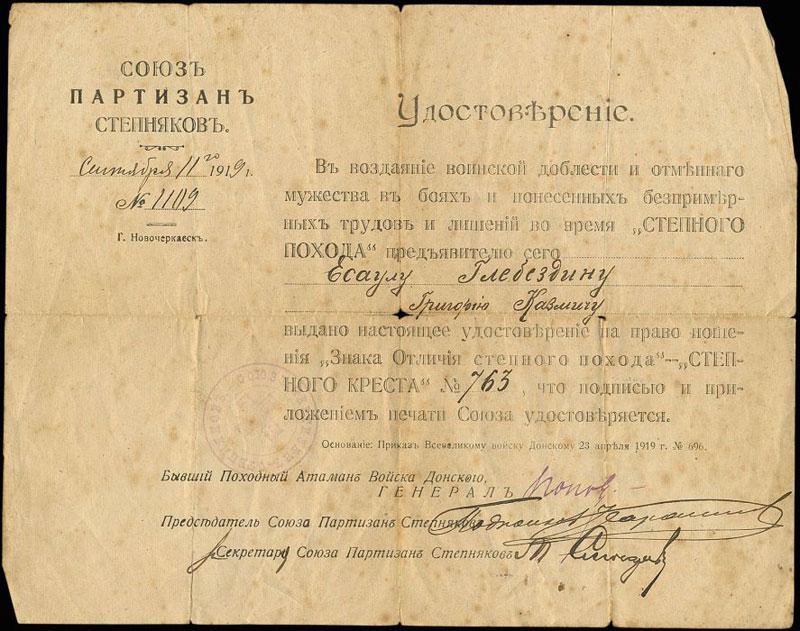 СОЮЗЪ
ПАРТИЗАНЪ
СТЕПНЯКОВЪ.
Сентября 11го 1919 г.
№ 1109
Г. Новочеркасскъ.
Удостовѣреніе.
Въ воздаяніе воинской доблести и отмѣннаго
мужества въ бояхъ и понесенныхъ безпримѣр-
ныхъ трудовъ и лишеній во время „СТЕПНОГО
ПОХОДА“ предъявителю сего
Есаулу Глебездину
Григорію Казмичу
выдано настоящее удостовѣреніе на право ноше-
нія „Знака Отличія степного похода“—„СТЕП-
НОГО КРЕСТА“ № 763, что подписью и при-
ложеніемъ печати Союза удостовѣряется.
Основаніе: Приказъ Всевеликому войску Донскому 23 апрѣля 1919 г. № 696.
Бывшій Походный Атаманъ Войска Донского,
ГЕНЕРАЛЪ Попов
Предсѣдатель Союза Партизанъ Степняковъ
Секретарь Союза Партизанъ Степняковъ